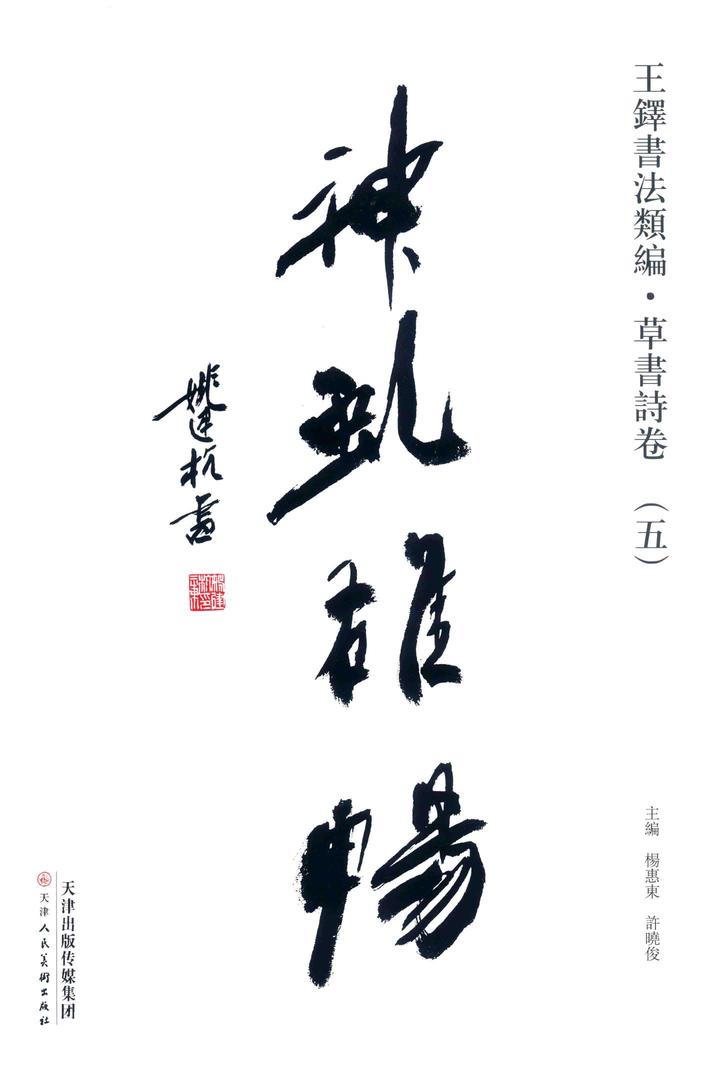 王鐸書法類編・草書詩卷（五）
主编 楊惠東 許曉俊
神虬雄暢
姚建杭書
天津出版传媒集团
天津人民美術出版社